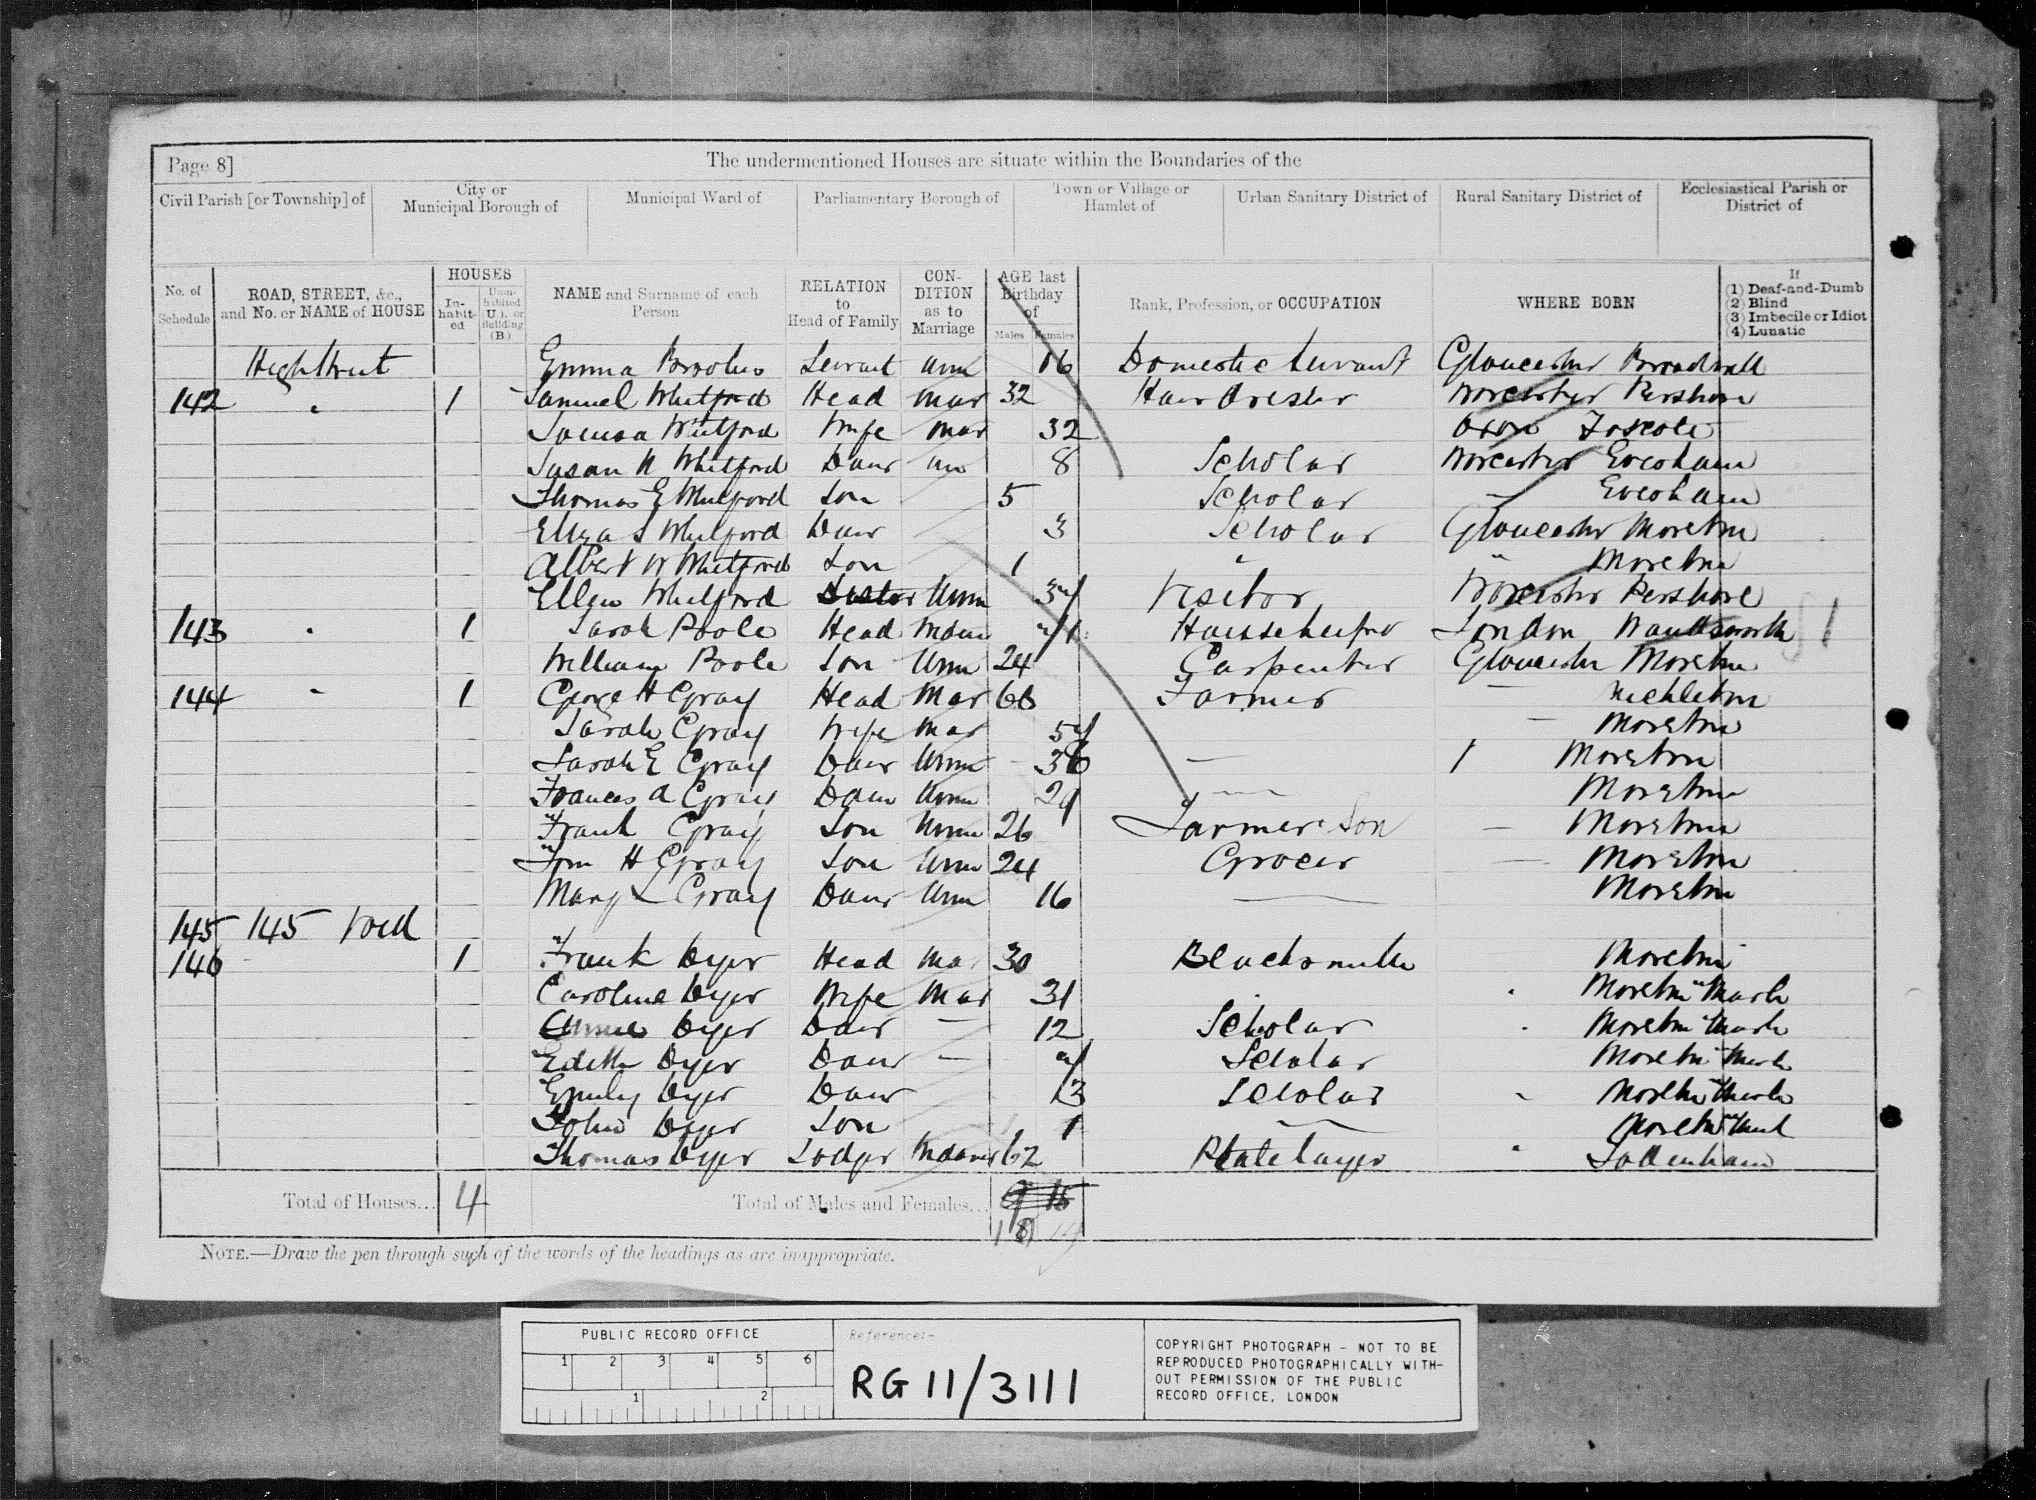 Page 8]
The undermentioned Houses are situate within the Boundaries of the
Civil Parish [or Township] of
City or Municipal Borough of
Municipal Ward of
Parliamentary Borough of
Town or Village or Hamlet of
Urban Sanitary District of
Rural Sanitary District of
Ecclesiastical Parish or District of
No. of Schedule
ROAD, STREET, &c., and No. or NAME of HOUSE
HOUSES
In-habit-ed
Unin-habited (U.), or Building (B.)
NAME and Surname of each Person
RELATION to Head of Family
CON-DITION as to Marriage
AGE last Birthday of
Males Females
Rank, Profession, or OCCUPATION
WHERE BORN
If
(1) Deaf-and-Dumb
(2) Blind
(3) Imbecile or Idiot
(4) Lunatic
High Street Emma Servant Unm 16 Domestic Servant Gloucester Broadwell
142 " 1 Samuel Whitford Head Mar 32 Hair dresser Worcester Pershore
Whitford Wife Mar 32 Oxon
Susan Whitford Daur Un 8 Scholar Worcester Evesham
Thomas E Whitford Son 5 Scholar Evesham
Eliza S Whitford Daur 3 Scholar Gloucester Moreton
Albert W Whitford Son 1 " " Moreton
Ellen Whitford Sister Unm Visitor Worcester Pershore
143 " 1 Sarah Poole Head London Wandsworth
William Poole Son Unm 24 Carpenter Gloucester Moreton
144 " 1 George H Gray Head Mar Farmer — Mickleton
Sarah Gray Wife Mar — Moreton
Sarah E Gray Daur Unm 36 — Moreton
Frances A Gray Daur Unm 29 — Moreton
Frank Gray Son Unm 26 Farmers Son — Moreton
Tom H Gray Son Unm 24 Grocer — Moreton
Mary L Gray Daur Unm 16 — Moreton
145 145 Void
146 1 Frank Dyer Head Mar 30 Blacksmith Moreton
Caroline Dyer Wife Mar 31 " Moreton Marsh
Annie Dyer Daur — 12 Scholar " Moreton Marsh
Edith Dyer Daur — Scholar Moreton Marsh
Emily Dyer Daur 3 Scholar " Moreton Marsh
John Dyer Son 1 — Moreton Marsh
Thomas Dyer Lodger 62 Platelayer " Todenham
Total of Houses... 4
Total of Males and Females...
NOTE.—Draw the pen through such of the words of the headings as are inappropriate.
PUBLIC RECORD OFFICE
1 2 3 4 5 6
1 2
Reference:-
RG 11/3111
COPYRIGHT PHOTOGRAPH - NOT TO BE
REPRODUCED PHOTOGRAPHICALLY WITH-
OUT PERMISSION OF THE PUBLIC
RECORD OFFICE, LONDON